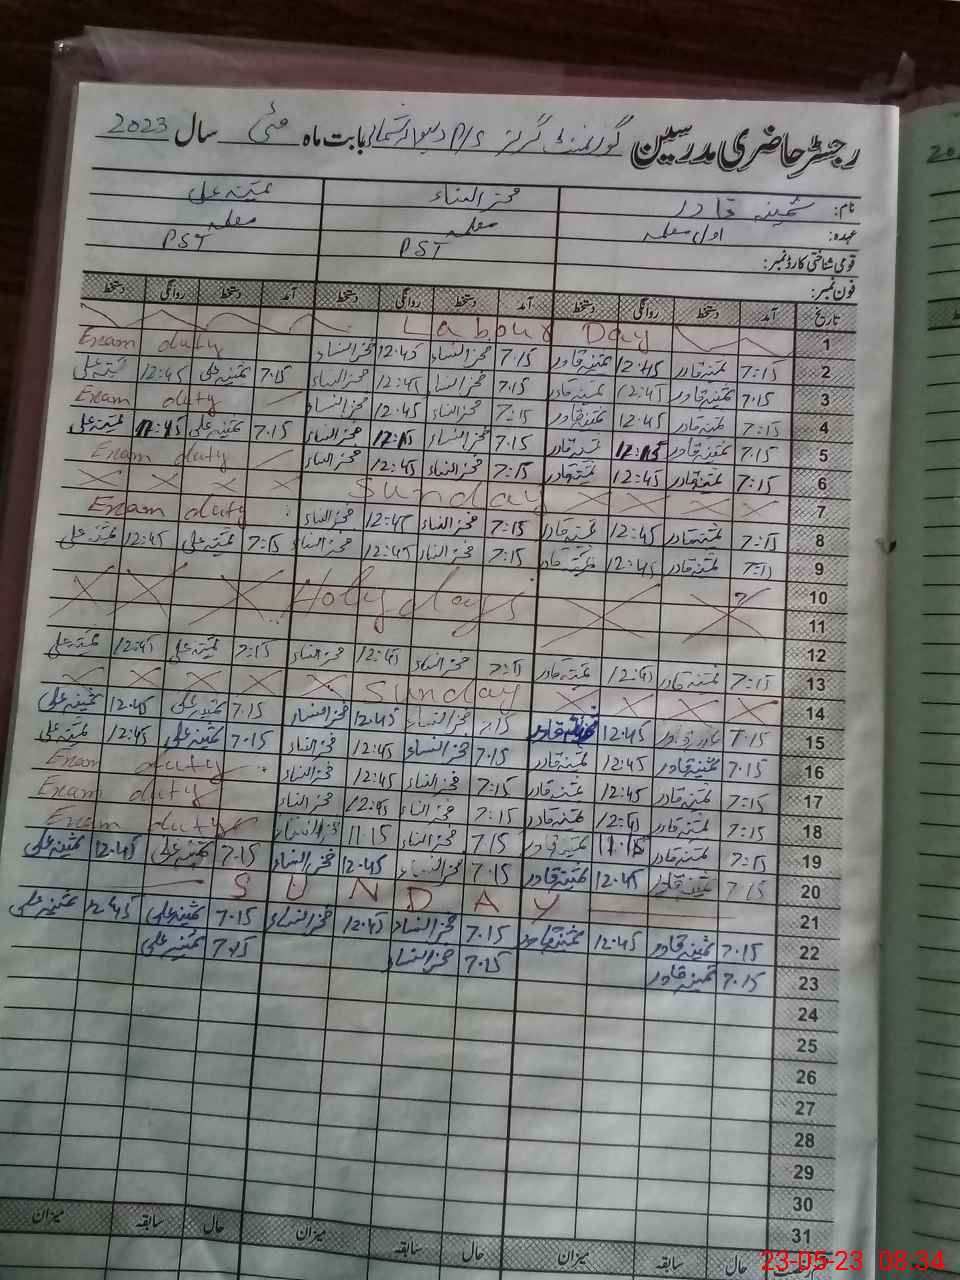 رجسٹر حاضری مدرسین گورنمنٹ گرلز P/S بابت ماہ مئی سال 2023
نام: ثمینہ قادر فخر النساء ثمینہ علی
عہدہ: اول معلمہ معلمہ PST معلمہ PST
قومی شناختی کارڈ نمبر:
فون نمبر:
تاریخ آمد دستخط روانگی دستخط آمد دستخط روانگی دستخط آمد دستخط روانگی دستخط
1 Labour Day
2 7:15 ثمینہ قادر 12:45 ثمینہ قادر 7.15 فخر النساء 12:45 فخر النساء Exam duty
3 7.15 ثمینہ قادر 12:45 ثمینہ قادر 7.15 فخر النساء 12:45 فخر النساء 7.15 ثمینہ علی 12:45 ثمینہ علی
4 7:15 ثمینہ قادر 12.45 ثمینہ قادر 7:15 فخر النساء 12.45 فخر النساء Exam duty
5 7.15 ثمینہ قادر ثمینہ قادر 7.15 فخر النساء فخر النساء 7.15 ثمینہ علی ثمینہ علی
6 7:15 ثمینہ قادر 12:45 ثمینہ قادر 7:15 فخر النساء 12:45 فخر النساء Exam duty
7 Sunday
8 7:15 ثمینہ قادر 12:45 ثمینہ قادر 7:15 فخر النساء 12:45 فخر النساء Exam duty
9 7:15 ثمینہ قادر 12:45 ثمینہ قادر 7:15 فخر النساء 12:45 فخر النساء 7:15 ثمینہ علی 12:45 ثمینہ علی
10 Holy days
11
12
13 7:15 ثمینہ قادر 12:45 ثمینہ قادر 7:15 فخر النساء 12:45 فخر النساء 7:15 ثمینہ علی 12:45 ثمینہ علی
14 Sunday
15 7.15 ثمینہ قادر 12.45 ثمینہ قادر 7.15 فخر النساء 12.45 فخر النساء 7.15 ثمینہ علی 12.45 ثمینہ علی
16 7.15 ثمینہ قادر 12:45 ثمینہ قادر 7.15 فخر النساء 12:45 فخر النساء 7.15 ثمینہ علی 12:45 ثمینہ علی
17 7:15 ثمینہ قادر 12:45 ثمینہ قادر 7:15 فخر النساء 12:45 فخر النساء Exam duty
18 7:15 ثمینہ قادر 12:45 ثمینہ قادر 7:15 فخر النساء 12:45 فخر النساء Exam duty
19 7:15 ثمینہ قادر 11:15 ثمینہ قادر 7.15 فخر النساء 11:15 فخر النساء Exam duty
20 7.15 ثمینہ قادر 12.45 ثمینہ قادر 7.15 فخر النساء 12.45 فخر النساء 7.15 ثمینہ علی 12.45 ثمینہ علی
21 SUNDAY
22 7.15 ثمینہ قادر 12.45 ثمینہ قادر 7.15 فخر النساء 12.45 فخر النساء 7.15 ثمینہ علی 12.45 ثمینہ علی
23 7.15 ثمینہ قادر 7.15 فخر النساء ثمینہ علی
24
25
26
27
28
29
30
31
حال سابقہ میزان حال سابقہ میزان حال سابقہ میزان
23-05-23 08:34